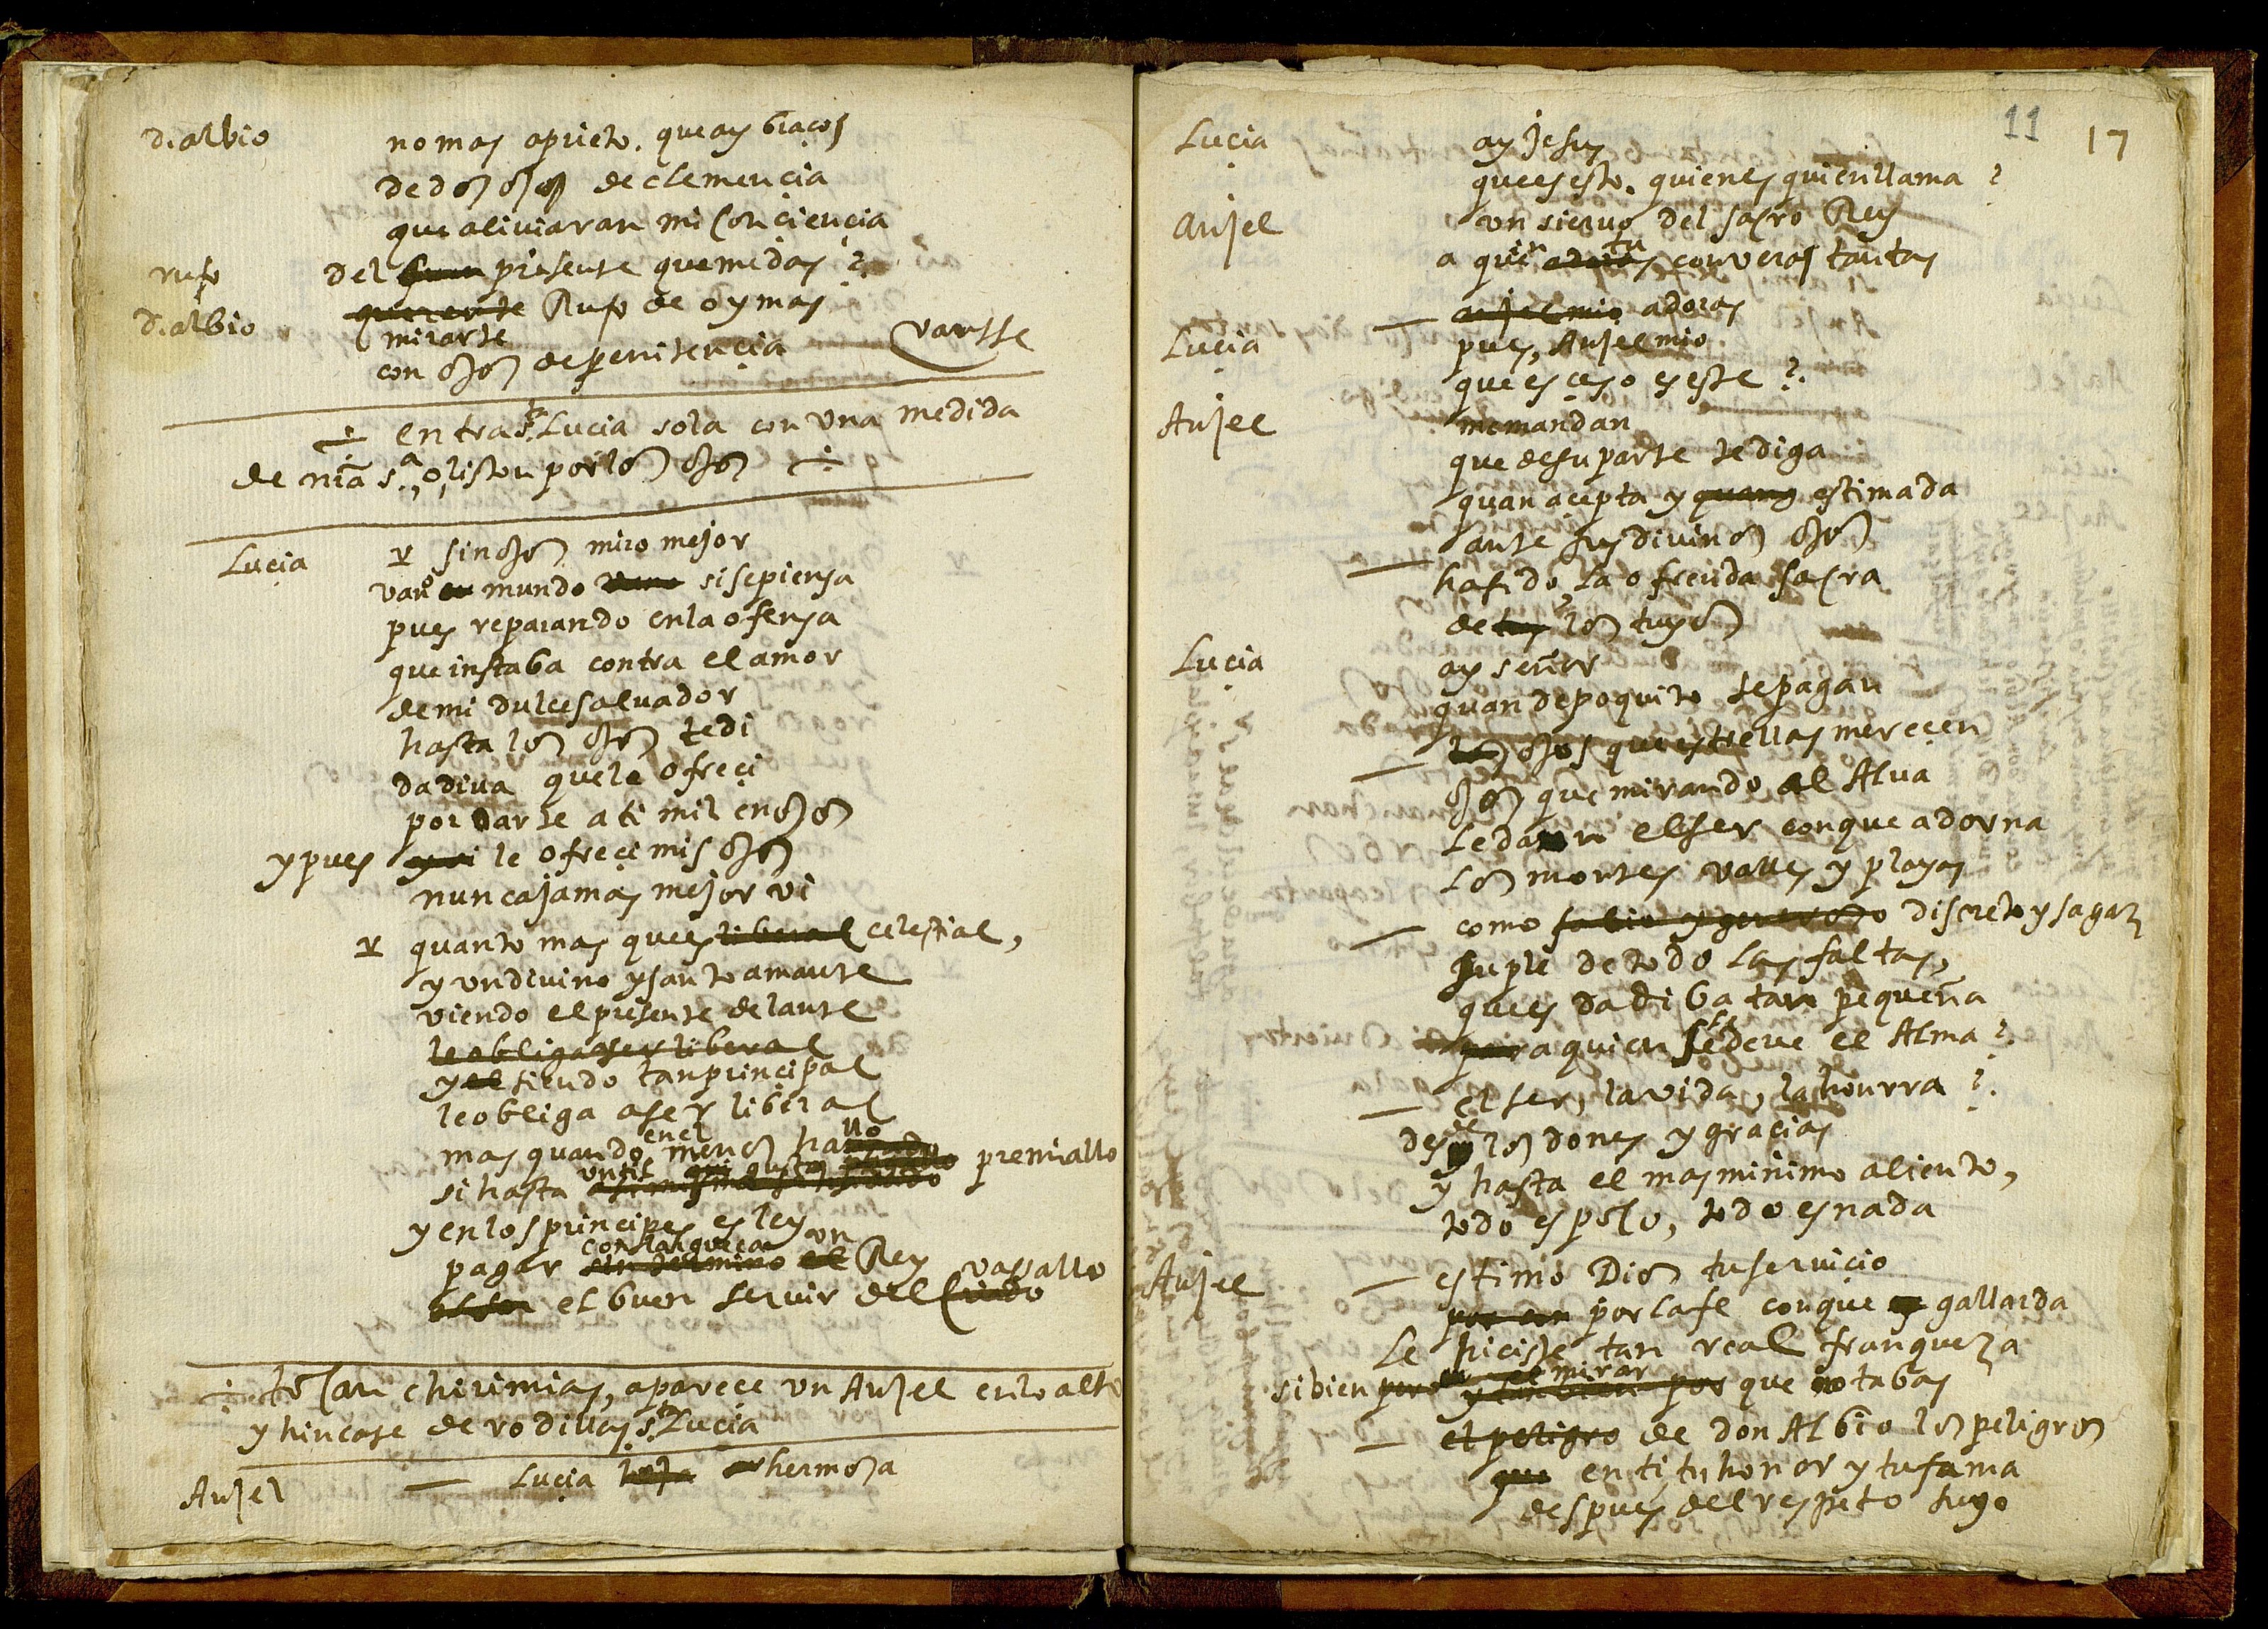 d. albio no mas aprieto. que ay braços
de dos ojos de clemencia
que aliviaran mi conciencia
rufo del buen presente que me das?
d. albio quererte Rufo de oy mas
mirarte
con ojos de penitencia vansse
entra s.ta Lucia sola con una medida
de nra s.a, o, liston por los ojos
Lucia sin ojos miro mejor
vano mundo si se piensa
pues reparando en la ofensa
que instaba contra el amor
de mi dulce salvador
hasta los ojos te di
dadiva que le ofreci
por darte a ti mil enojos
y pues le ofreci mis ojos
nunca jamas mejor vi
quanto mas que es liberal celestial,
y un divino y santo amante
viendo el presente delante
le obliga a ser liberal
y el siendo tan principal
le obliga a ser liberal
mas quando en el menos hallo
si hasta premiallo
y en los principes es ley
pagar con largueça sin termino el un Rey
el buen servir del criado vasallo
tocan chirimias, aparece un Anjel en lo alto
y hincase de rodillas s.ta Lucia
Anjel Lucia hermosa
11 17
Lucia ay Jesus
que es esto. quien es quien llama?
anjel un siervo del sacro Rey
a quien tu con veras tantas
anjel mio adoras
Lucia pues, Anjel mio
que esceso es este?
Anjel me mandan
que de su parte te diga
quan acepta y estimada
ante sus divinos ojos
ha sido la ofrenda sacra
de tus los tuyos
Lucia ay señor
quan de poquito te pagan
los ojos que estrellas mereçen
ojos que mirando al Alva
le dan el ser con que adorna
los montes valles y playas
como sabio y generoso discreto y sagaz
suple de todo las faltas,
que es dadiba tan pequeña
para quien se le deve el Alma?
el ser, la vida, la honrra?
desde los dones y gracias
y hasta el mas minimo aliento,
todo es polvo, todo es nada
Anjel estimo Dios tu servicio
por la fe con que gallarda
le hiciste tan real franqueza
si bien el mirar y tan bien por que notabas
el peligro de don Albio los peligros
que en ti tu honor y tu fama
despues del respeto suyo